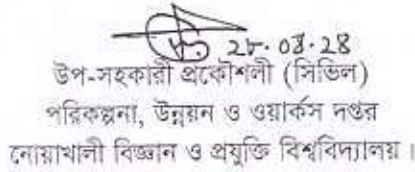 ২৮.০৪.২৪
উপ-সহকারী প্রকৌশলী (সিভিল)
পরিকল্পনা, উন্নয়ন ও ওয়ার্কস দপ্তর
নোয়াখালী বিজ্ঞান ও প্রযুক্তি বিশ্ববিদ্যালয়।